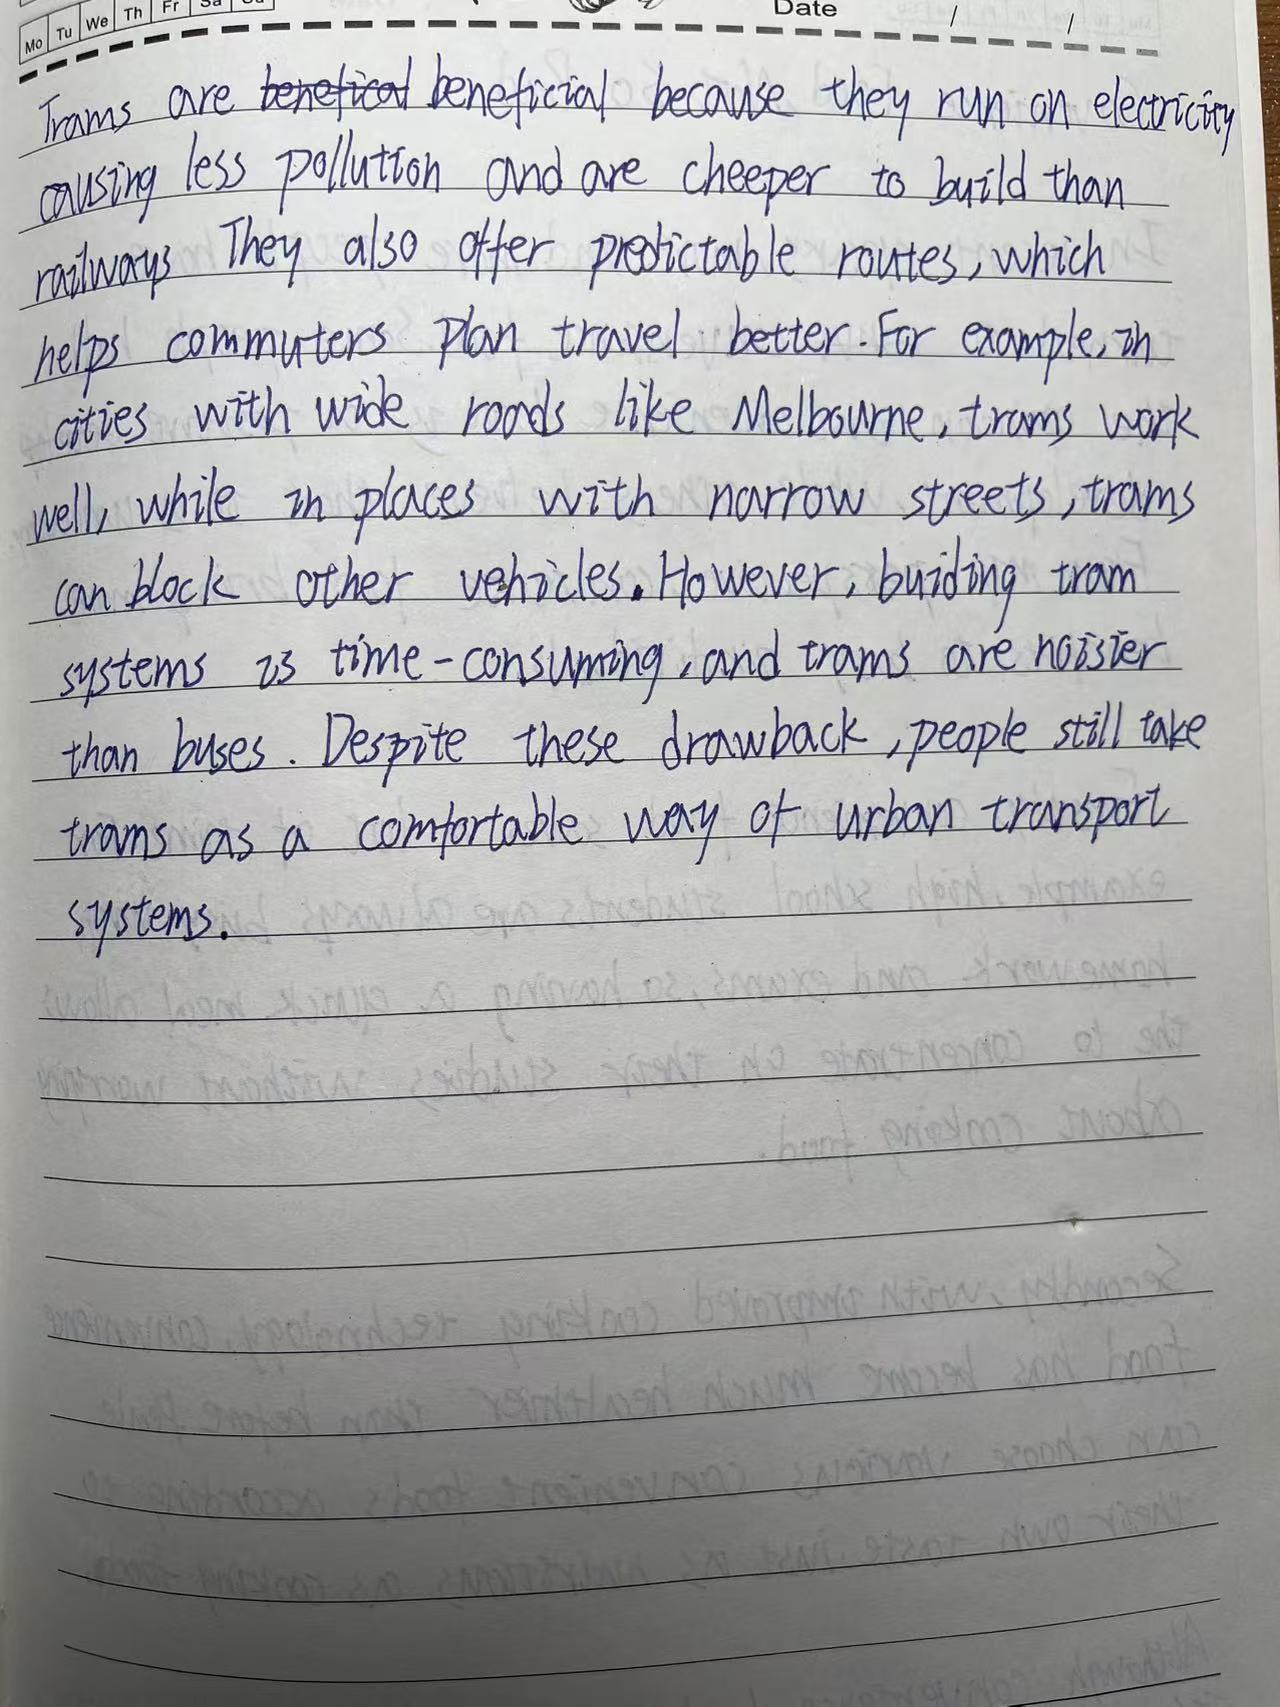 Mo Tu We Th Fr Sa Su Date / /
Trams are benefical beneficial because they run on electricity
causing less pollution and are cheeper to build than
railways They also offer predictable routes, which
helps commuters plan travel better. For example, in
cities with wide roads like Melbourne, trams work
well, while in places with narrow streets, trams
can block other vehicles. However, buiding tram
systems is time-consuming, and trams are noisier
than buses. Despite these drawback, people still take
trams as a comfortable way of urban transport
systems.